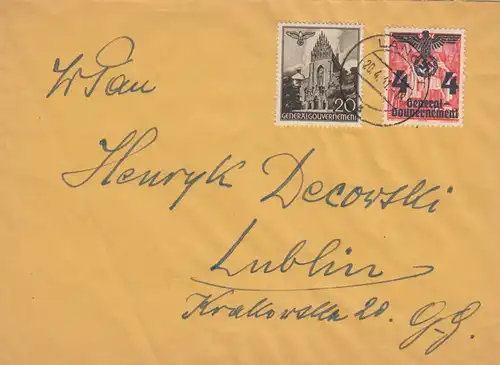 20
GENERALGOUVERNEMENT
4 4
General-
Gouvernement
20.4.
W Pan
Henryk Decowski
Lublin
Krakowska 20. G-G.